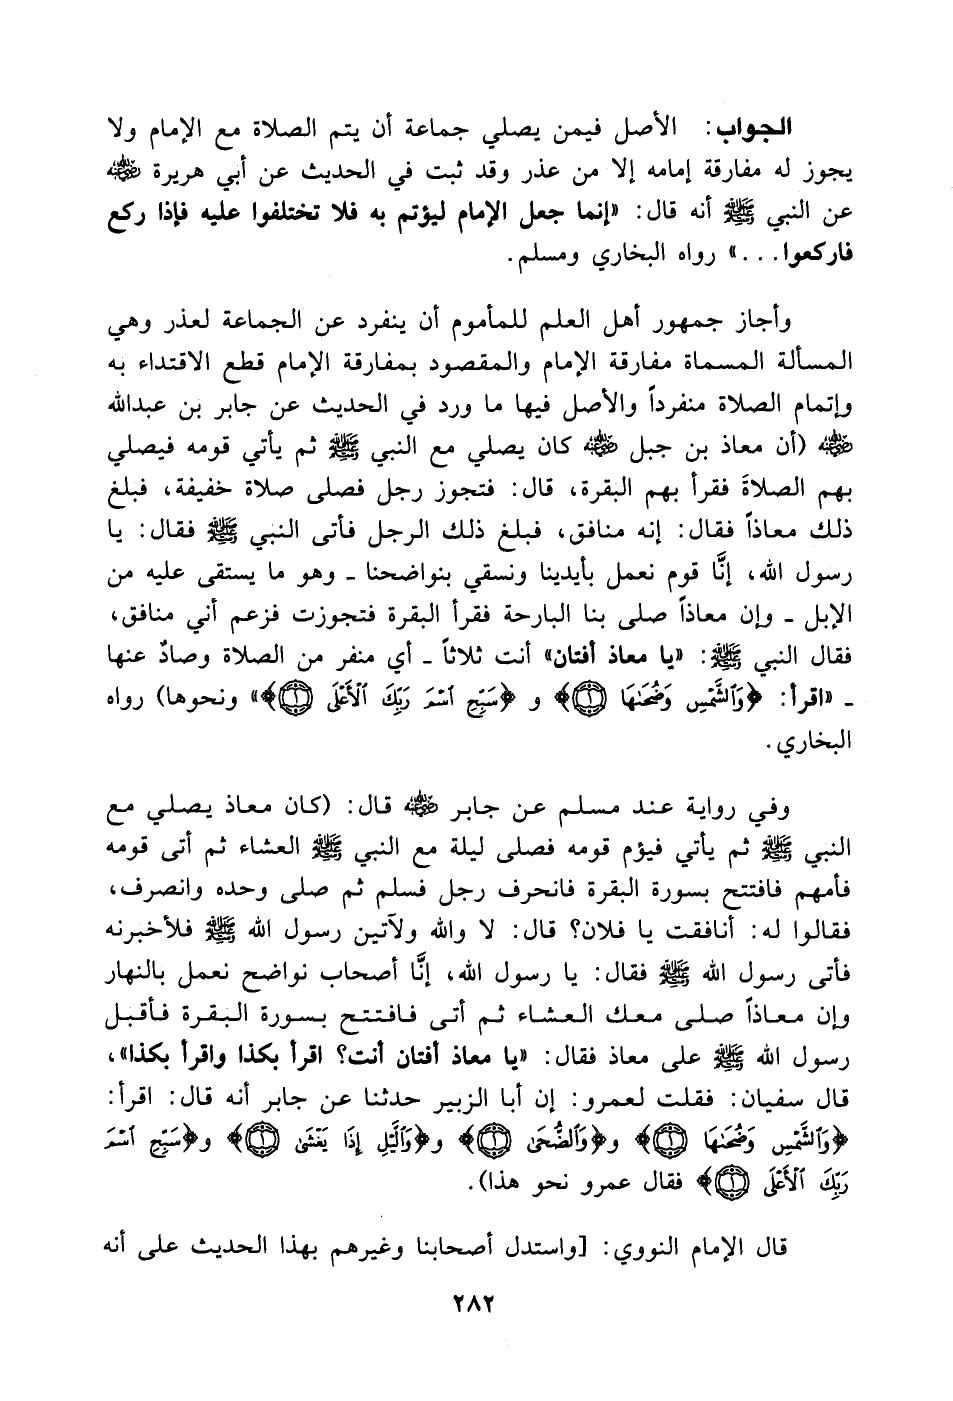 الجواب: الأصل فيمن يصلي جماعة أن يتم الصلاة مع الإمام ولا
يجوز له مفارقة إمامه إلا من عذر وقد ثبت في الحديث عن أبي هريرة رضي الله عنه
عن النبي ﷺ أنه قال: «إنما جعل الإمام ليؤتم به فلا تختلفوا عليه فإذا ركع
فاركعوا...» رواه البخاري ومسلم.
وأجاز جمهور أهل العلم للمأموم أن ينفرد عن الجماعة لعذر وهي
المسألة المسماة مفارقة الإمام والمقصود بمفارقة الإمام قطع الاقتداء به
وإتمام الصلاة منفرداً والأصل فيها ما ورد في الحديث عن جابر بن عبدالله
رضي الله عنه (أن معاذ بن جبل رضي الله عنه كان يصلي مع النبي ﷺ ثم يأتي قومه فيصلي
بهم الصلاةَ فقرأ بهم البقرة، قال: فتجوز رجل فصلى صلاة خفيفة، فبلغ
ذلك معاذاً فقال: إنه منافق، فبلغ ذلك الرجل فأتى النبي ﷺ فقال: يا
رسول الله، إنَّا قوم نعمل بأيدينا ونسقي بنواضحنا ـ وهو ما يستقى عليه من
الإبل ـ وإن معاذاً صلى بنا البارحة فقرأ البقرة فتجوزت فزعم أني منافق،
فقال النبي ﷺ: «يا معاذ أفتان» أنت ثلاثاً ـ أي منفر من الصلاة وصادٌ عنها
ـ «اقرأ: ﴿وَٱلشَّمْسِ وَضُحَىٰهَا ١﴾ و ﴿سَبِّحِ ٱسْمَ رَبِّكَ ٱلْأَعْلَى ١﴾» ونحوها) رواه
البخاري.
وفي رواية عند مسلم عن جابر رضي الله عنه قال: (كان معاذ يصلي مع
النبي ﷺ ثم يأتي فيؤم قومه فصلى ليلة مع النبي ﷺ العشاء ثم أتى قومه
فأمهم فافتتح بسورة البقرة فانحرف رجل فسلم ثم صلى وحده وانصرف،
فقالوا له: أنافقت يا فلان؟ قال: لا والله ولآتين رسول الله ﷺ فلأخبرنه
فأتى رسول الله ﷺ فقال: يا رسول الله، إنَّا أصحاب نواضح نعمل بالنهار
وإن معاذاً صلى معك العشاء ثم أتى فافتتح بسورة البقرة فأقبل
رسول الله ﷺ على معاذ فقال: «يا معاذ أفتان أنت؟ اقرأ بكذا واقرأ بكذا»،
قال سفيان: فقلت لعمرو: إن أبا الزبير حدثنا عن جابر أنه قال: اقرأ:
﴿وَٱلشَّمْسِ وَضُحَىٰهَا ١﴾ و﴿وَٱلضُّحَىٰ ١﴾ و﴿وَٱلَّيْلِ إِذَا يَغْشَىٰ ١﴾ و﴿سَبِّحِ ٱسْمَ
رَبِّكَ ٱلْأَعْلَى ١﴾ فقال عمرو نحو هذا).
قال الإمام النووي: [واستدل أصحابنا وغيرهم بهذا الحديث على أنه
٢٨٢